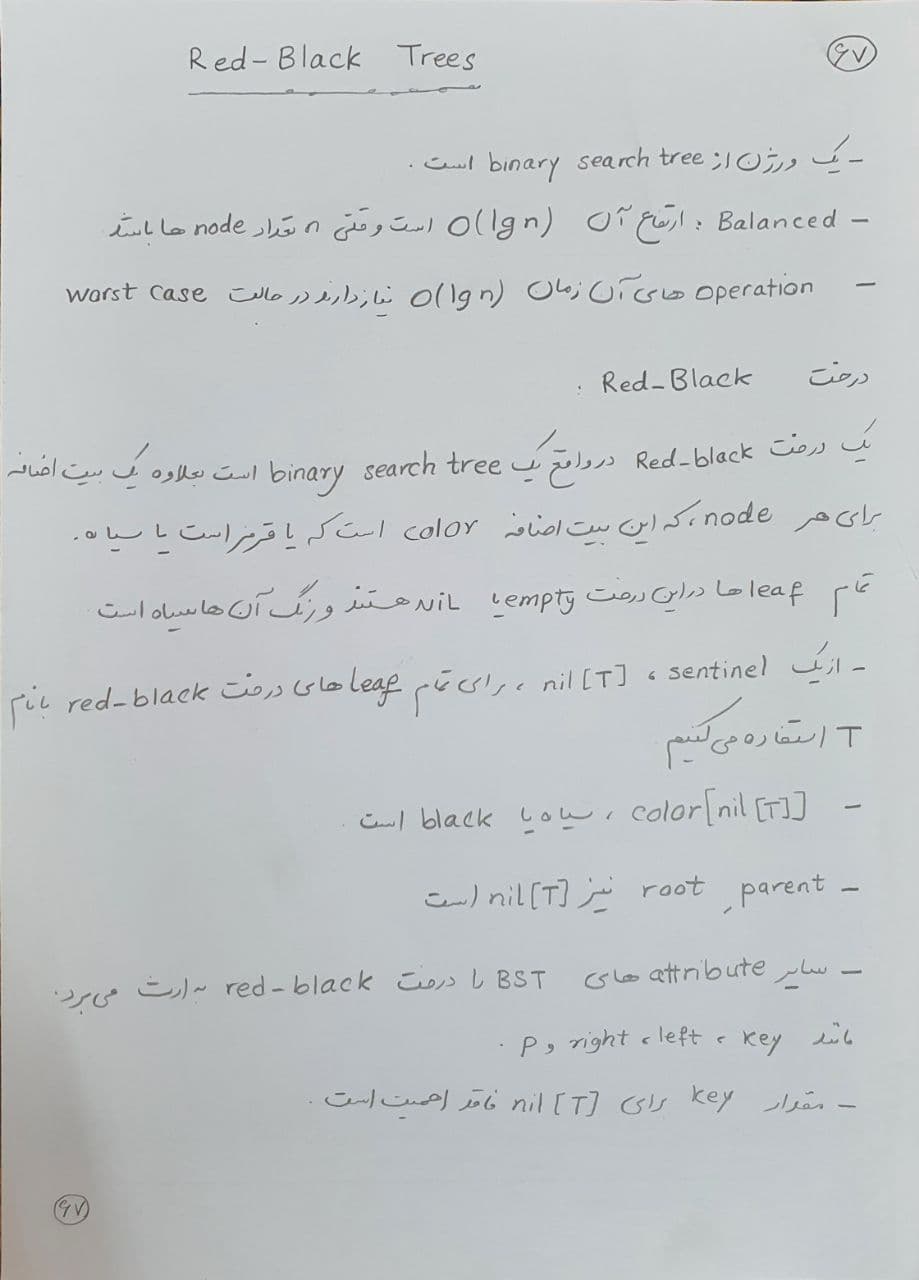 Red-Black Trees
۶۷
- یک ورژن از binary search tree است.
- Balanced : ارتفاع آن O(lg n) است وقتی n تعداد node ها باشد
- operation های آن زمان O(lg n) نیاز دارند در حالت worst case
درخت Red-Black :
یک درخت Red-black در واقع یک binary search tree است بعلاوه یک بیت اضافه
برای هر node، که این بیت اضافه color است که یا قرمز است یا سیاه.
تمام leaf ها در این درخت empty یا NIL هستند و رنگ آن ها سیاه است
- از یک sentinel ، nil[T] ، برای تمام leaf های درخت red-black بانام
T استفاده می کنیم
- color[nil[T]] ، سیاه یا black است.
- parent ِ root نیز nil[T] است
- سایر attribute های BST را درخت red-black به ارث می برد.
مانند key ، left ، right و p .
- مقدار key برای nil[T] فاقد اهمیت است.
۶۷